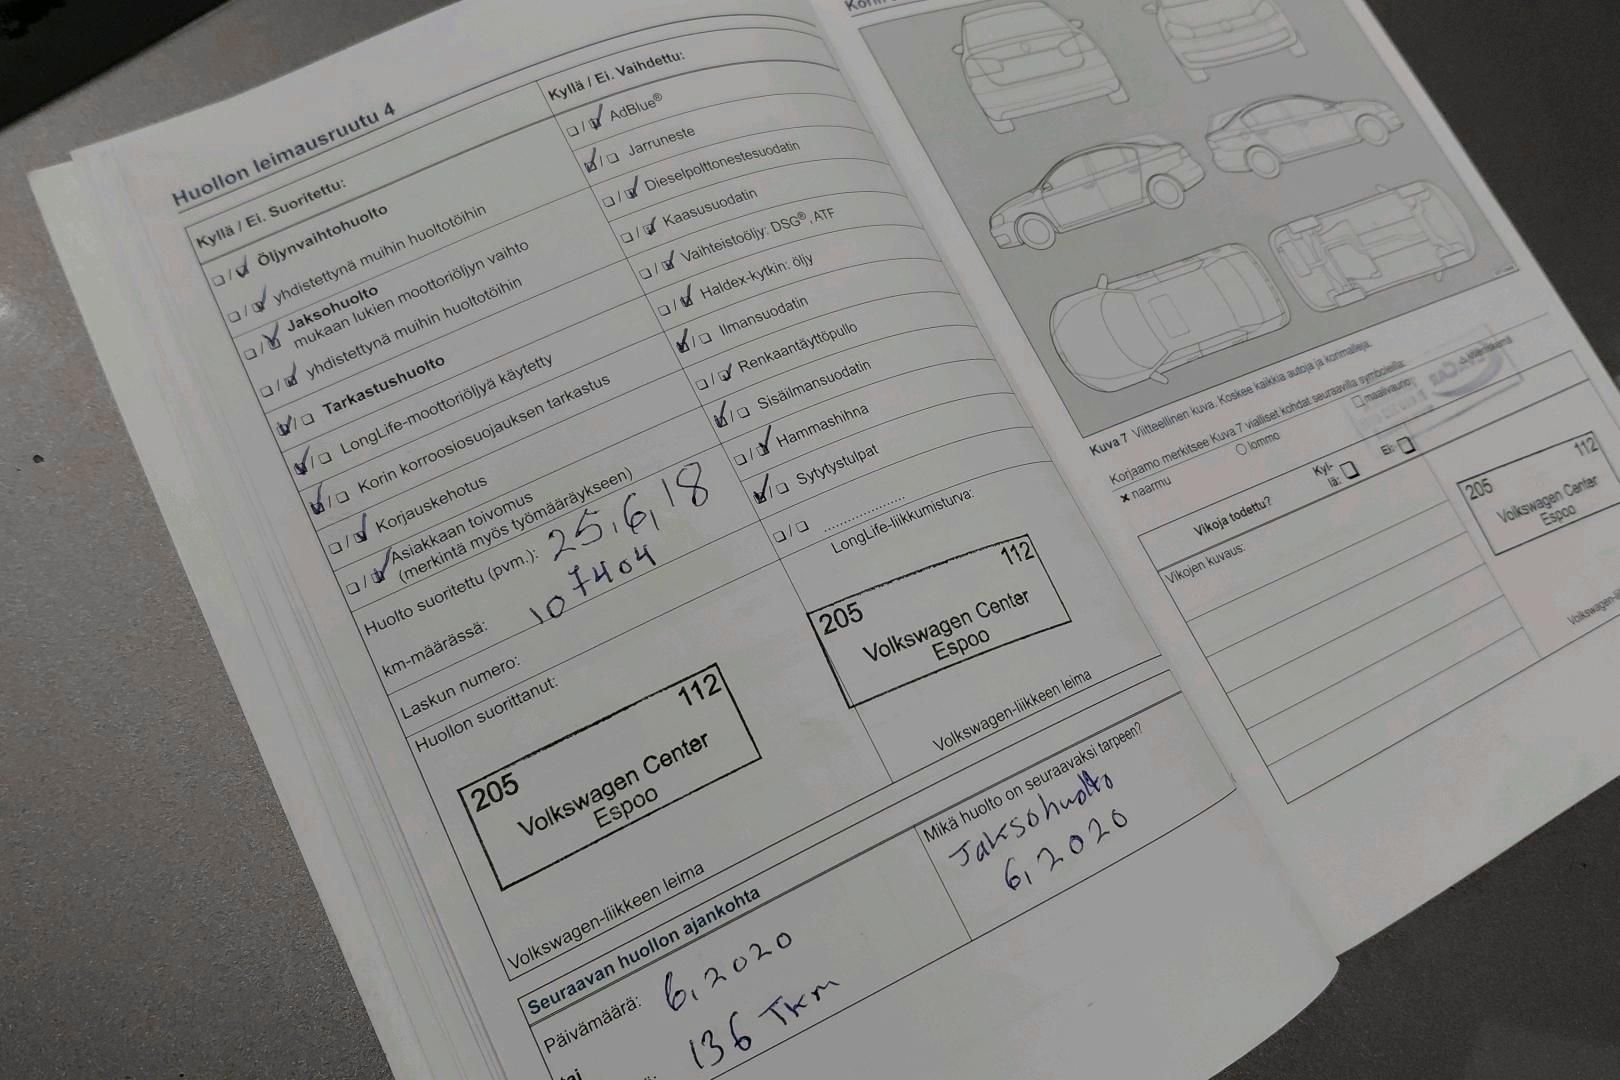 Huollon leimausruutu 4
Kyllä / Ei. Suoritettu:
Öljynvaihtohuolto
yhdistettynä muihin huoltotöihin
Jaksohuolto
mukaan lukien moottoriöljyn vaihto
yhdistettynä muihin huoltotöihin
Tarkastushuolto
LongLife-moottoriöljyä käytetty
Korin korroosiosuojauksen tarkastus
Korjauskehotus
Asiakkaan toivomus
(merkintä myös työmääräykseen)
Huolto suoritettu (pvm.): 25,6,18
km-määrässä: 107404
Laskun numero:
Huollon suorittanut:
205 112
Volkswagen Center
Espoo
Volkswagen-liikkeen leima
Kyllä / Ei. Vaihdettu:
AdBlue®
Jarruneste
Dieselpolttonestesuodatin
Kaasusuodatin
Vaihteistoöljy: DSG®, ATF
Haldex-kytkin: öljy
Ilmansuodatin
Renkaantäyttöpullo
Sisäilmansuodatin
Hammashihna
Sytytystulpat
LongLife-liikkumisturva:
205 112
Volkswagen Center
Espoo
Volkswagen-liikkeen leima
Seuraavan huollon ajankohta
Päivämäärä: 6,2020
tai
136 Tkm
Mikä huolto on seuraavaksi tarpeen?
Jaksohuolto
6,2020
Kuva 7 Viitteellinen kuva. Koskee kaikkia autoja ja korimalleja.
Korjaamo merkitsee Kuva 7 vialliset kohdat seuraavilla symboleilla:
x naarmu lommo maalivaurio
Vikoja todettu? Kyl-
lä: Ei:
Vikojen kuvaus:
205 112
Volkswagen Center
Espoo